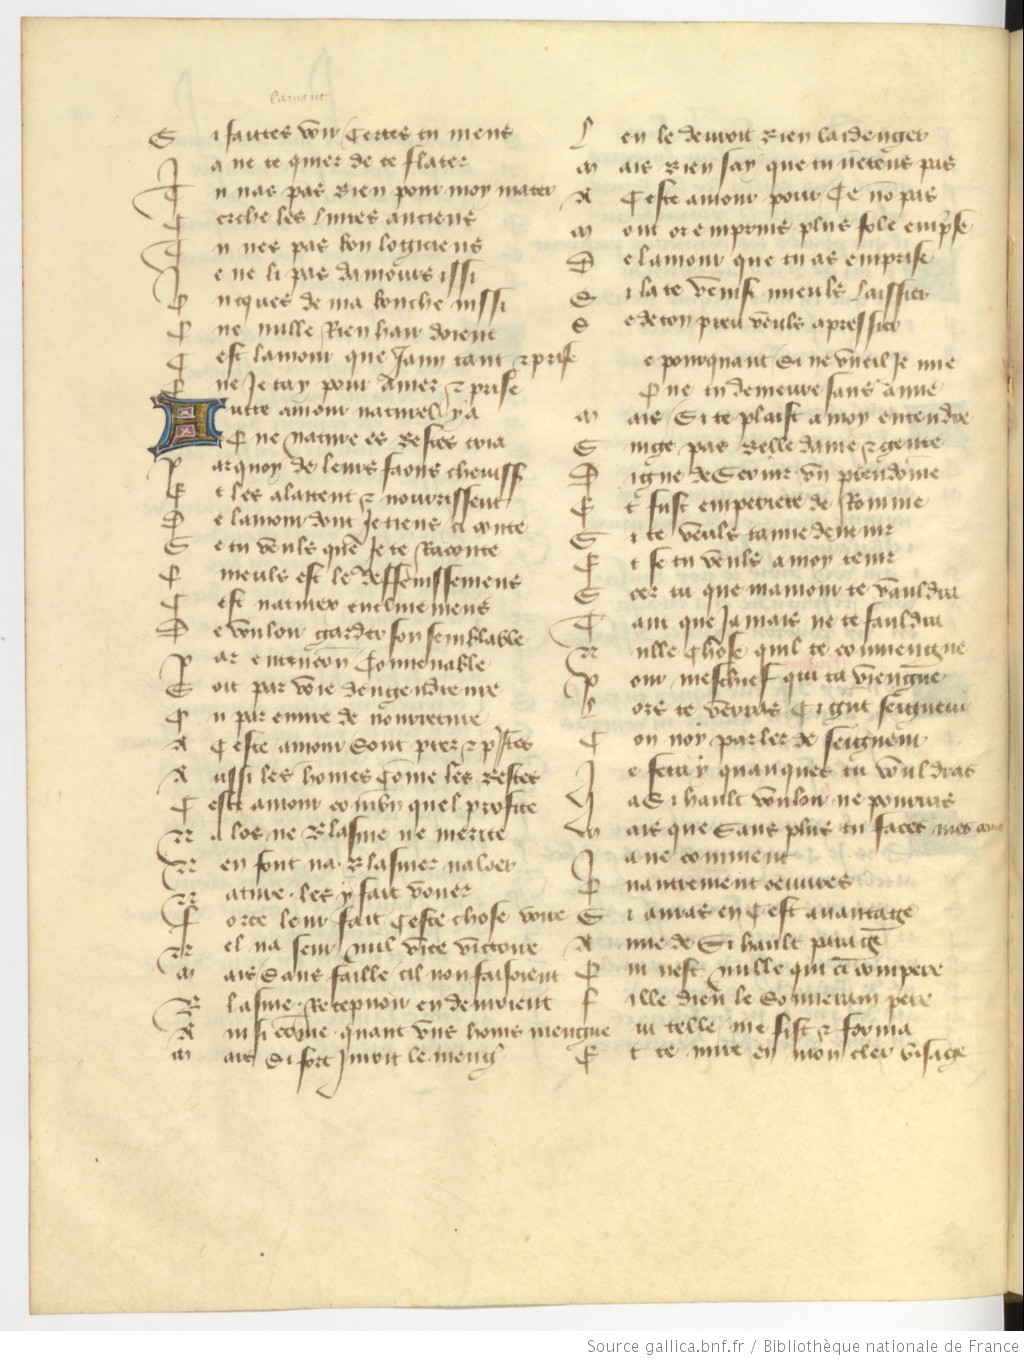 lamant
Si faittes voir Certes tu mens
Ja ne te quier de te flater
Tu nas pas bien pour moy mater
Cerche les livres anciens
Tu nes pas bon logiciens
Je ne li pas damours issi
Oncques de ma bouche nissi
Que nulle Rien hair doient
Cest lamour que Jaim tant & prise
Que Je tay pour amer & prise
Autre amour naturel y a
Que nature es bestes cria
Par quoy de leurs faons chevissent
Et les alaitent & nourrissent
De lamour dont Je tiens ci conte
Se tu veuls que Je te Raconte
Quieuls est le deffenissemens
Cest naturex enclinemens
De voulour garder son semblable
Par entencon Convenable
Soit par voie dengendreure
Ou par cure de nourreture
A Ceste amour Sont prez & prestes
Aussi les homes Come les bestes
Ceste amour combn quel profite
Na los ne blasme ne merite
Nen font na blasmer naloer
Nature les y fait vouer
Force leur fait Ceste chose voire
Nel na seur nul vice victoire
Mais Sans faille cil non faisoient
Blasme Recepvoir en devroient
Ainsi come quant uns homs mengue
Mais Si fort
Len le devroit bien laidenger
Mais bien say que tu nentens pas
A Ceste amour pour Ce non pas
Mont ore emprins plus fole emprise
De lamour que tu as emprise
Si la te venist mieuls laissier
Se de ton preu veuls apressier
Ne pourquant Si ne vueil Je mie
Que tu demeure sans amie
Mais Si te plaist a moy entendre
Suige pas belle dame & gente
Digne de Servir un preudome
Et fust emperiere de Romme
Si te veuls tamie devenir
Et se tu veuls a moy tenir
Scez tu que mamour te vauldra
Tant que Jamais ne te fauldra
Nulle Chose quil te conviengne
Pour meschief qui ta viengne
Lors te verras Si gnt seigneur
Con noy parler de seigneur
Je feray quanques tu vouldras
Ja Si hault vouloir ne pourras
Mais que Sans plus tu faces mes
Ja ne comment
Quautrement oeuvres
Si auras en Cest avantage
Amie de Si hault parage
Quil nest nulle qui ci compere
Fille dieu le Souverain pere
Qui telle me fist & forma
Et te mire en mon cler visage